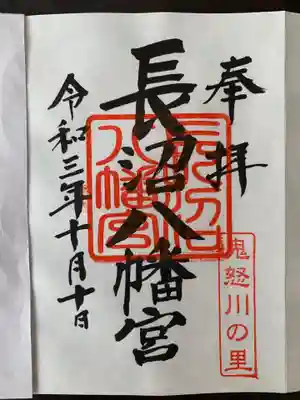 奉拝
長沼八幡宮
長沼
八幡宮
鬼怒川の里
令和三年十月十日